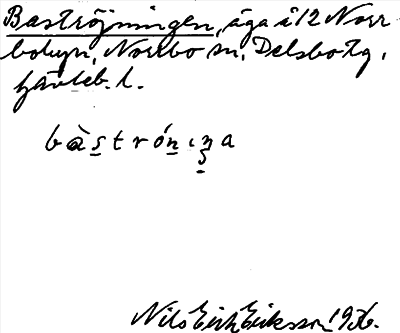 Baströjningen, äga å 12 Norr
bobyn, Norrbo sn, Delsbo tg,
Gävleb. l.
bàstróniŋa
Nils Erik Eriksson 1936.